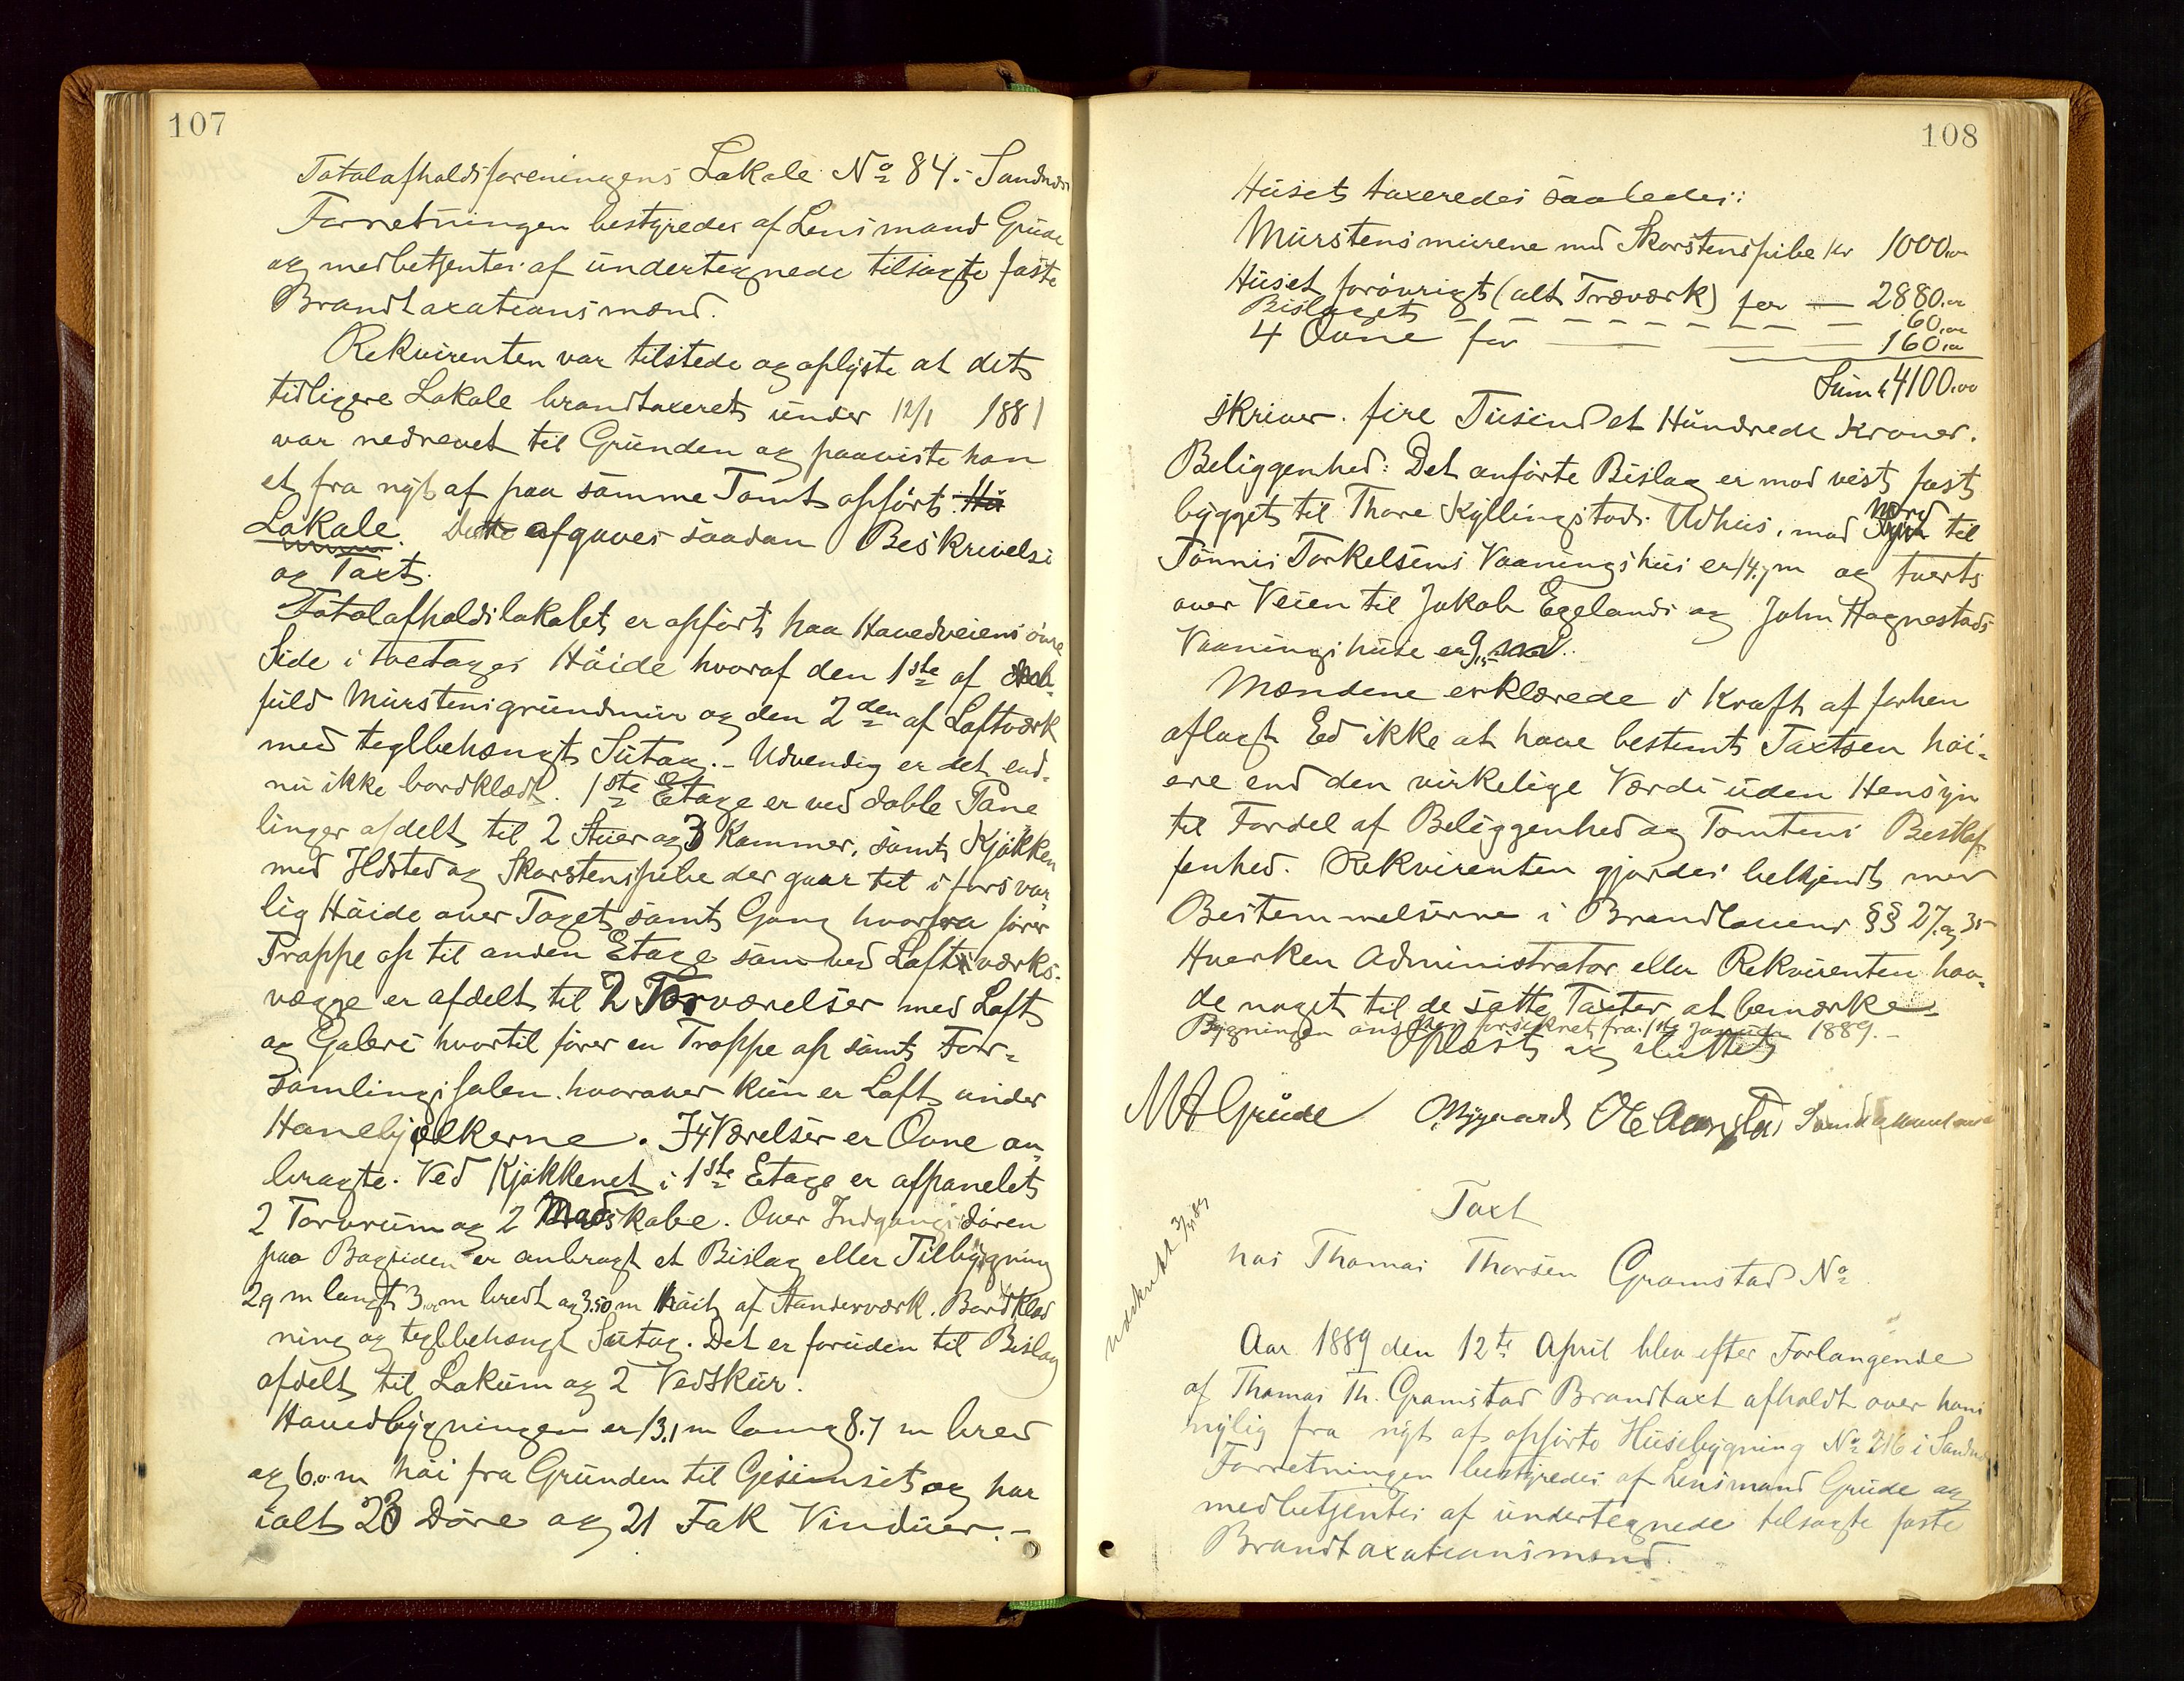 107
Totalafholdsforeningens Lokale No 84. Sandnæs
Forretningen bestyredes af Lensmand Grude
og medbetjentes af undertegnede tilsagte faste
Brandtaxationsmænd.
Rekvirenten var tilstede og oplyste at det
tidligere Lokale brandtaxeret under 12/1 1881
var nedrevet til Grunden og paaviste han
et fra nyt af paa samme Tomt opført Hu
Lokale. Dette afgaves saadan Beskrivelse
og Taxt.
Totalafholdslokalet er opført paa Hovedveiens øvre
Side i toetages Høide hvoraf den 1ste af
fuld Murstensgrundmur og den 2den af Loftværk
med teglbehængt Sutag. - Udvendig er det end-
nu ikke bordklædt. 1ste Etage er ved doble Pane
linger afdelt til 2 Stuer og 3 Kammer, samt Kjøkken
med Ildsted og Skorstenspibe der gaar til i forsvar
lig Høide over Taget samt Gang hvorfra fører
Trappe op til anden Etage som ved Loftsværks-
vægge er afdelt til 2 Forværelser med Loft
og Galeri hvortil fører en Trappe op samt For-
samlingssalen hvorover kun er Loft under
Hanebjælkerne. I 4 Værelser er Ovne an-
bragte. Ved Kjøkkenet i 1ste Etage er afpanelet
2 Torvrum og 2 Madskabe. Over Indgangsdøren
paa Bagsiden er anbragt et Bislag eller Tilbygning
2,9 m langt 3,00 m bredt og 3.50 m høit af Standerværk. Bordklæd
ning og teglbehængt Sutag. Det er foruden til Bislag
afdelt til Lokum og 2 Vedskur.
Hovedbygningen er 13,1 m lang 8.7 m bred
og 6.0 m høi fra Grunden til Gesimset og har
ialt 23 Døre og 21 Fak Vinduer. -
108
Huset taxeredes saaledes:
Murstensmurene med Skorstenspibe kr 1000.00
Huset forøvrigt (alt Træværk) for — 2880.00
Bislaget — — — — — — — 60.00
4 Ovne for — — — 160.00
Sum kr 4100.00
skriver fire Tusind et Hundrede Kroner.
Beliggenhed: Det anførte Bislag er mod vest fast
bygget til Thore Kyllingstads Udhus, mod nord til
Tønnes Torkelsens Vaaningshus er 14.7 m og tverts
over Veien til Jakob Egelands og John Hognestads
Vaaningshuse er 9,5
Mændene erklærede i Kraft af forhen
aflagt Ed ikke at have bestemt Taxtsen høi-
ere end den virkelige Værdi uden Hensyn
til Fordel af Beliggenhed og Tomtens Beskaf
fenhed. Rekvirenten gjordes bekjendt med
Bestemmelserne i Brandlovens §§ 27. og 35
Hverken Administrator eller Rekvirenten hav-
de noget til de satte Taxter at bemærke.
Bygningen ansees forsikret fra 1ste Januar 1889. -
Oplæst og sluttet
M A Grude O. Nygaard O E Aarstad
Udskrevet 3/5 89
Taxt
hos Thomas Thorsen Gramstad No
Aar 1889 den 12te April blev efter Forlangende
af Thomas Th. Gramstad Brandtaxt afholdt over hans
nylig fra nyt af opførte Husebygning No 216 i Sandnæs
Forretningen bestyredes af Lensmand Grude og
medbetjentes af undertegnede tilsagte faste
Brandtaxationsmænd.